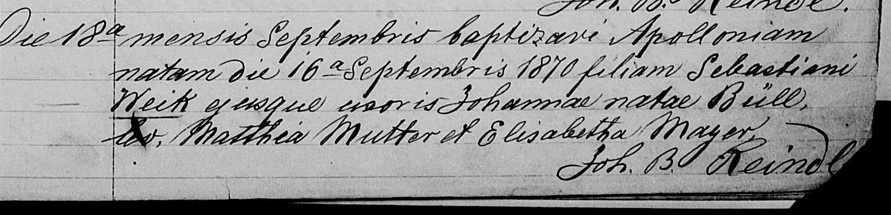 Joh. B. Reindl.
Die 18a mensis Septembris baptizavi Apolloniam
natam die 16a Septembris 1870 filiam Sebastiani
Weik ejusque uxoris Johannae natae Büll.
Lev. Matthia Mutter et Elisabetha Mayer,
Joh. B. Reindl